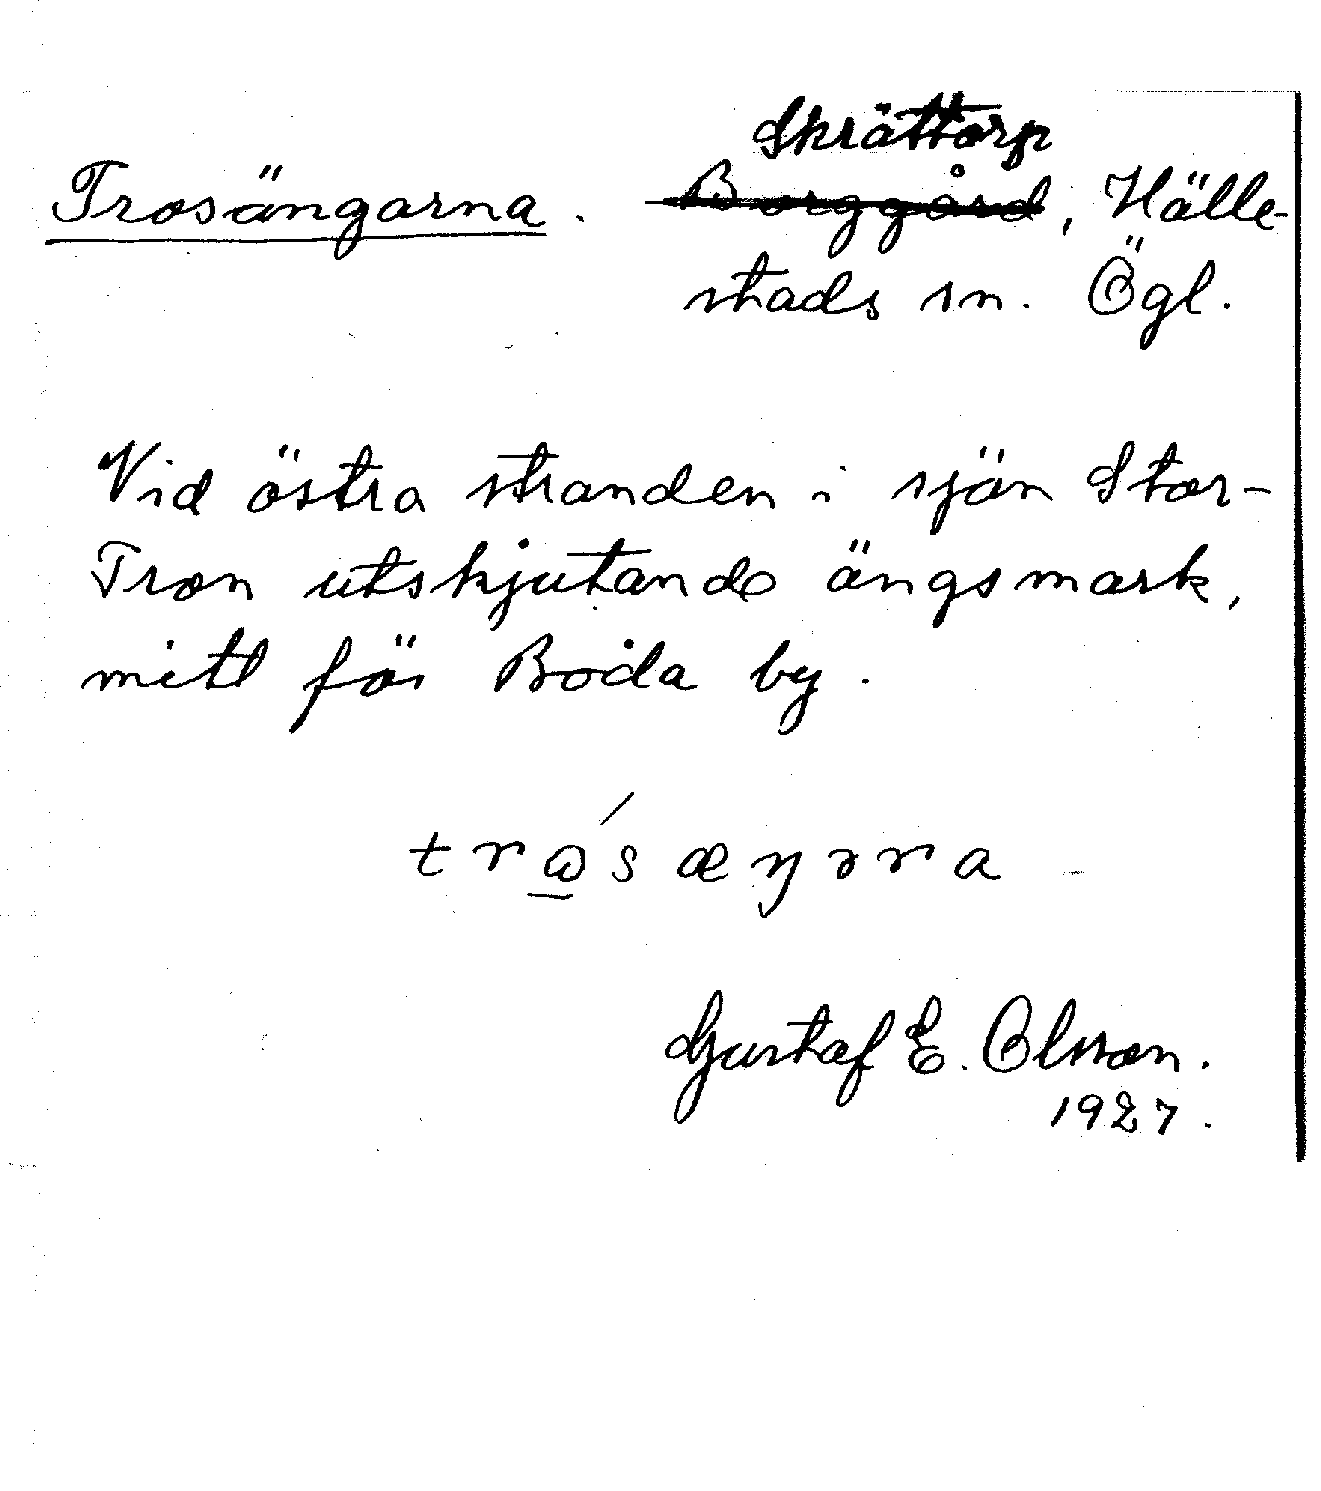 Skrättorp
Trosängarna. Borggård, Hälle-
stads sn. Ögl.
Vid östra stranden i sjön Stor-
Tron utskjutande ängsmark,
mitt för Boda by.
trώ̲sæŋəra
Gustaf E. Olsson.
1927.